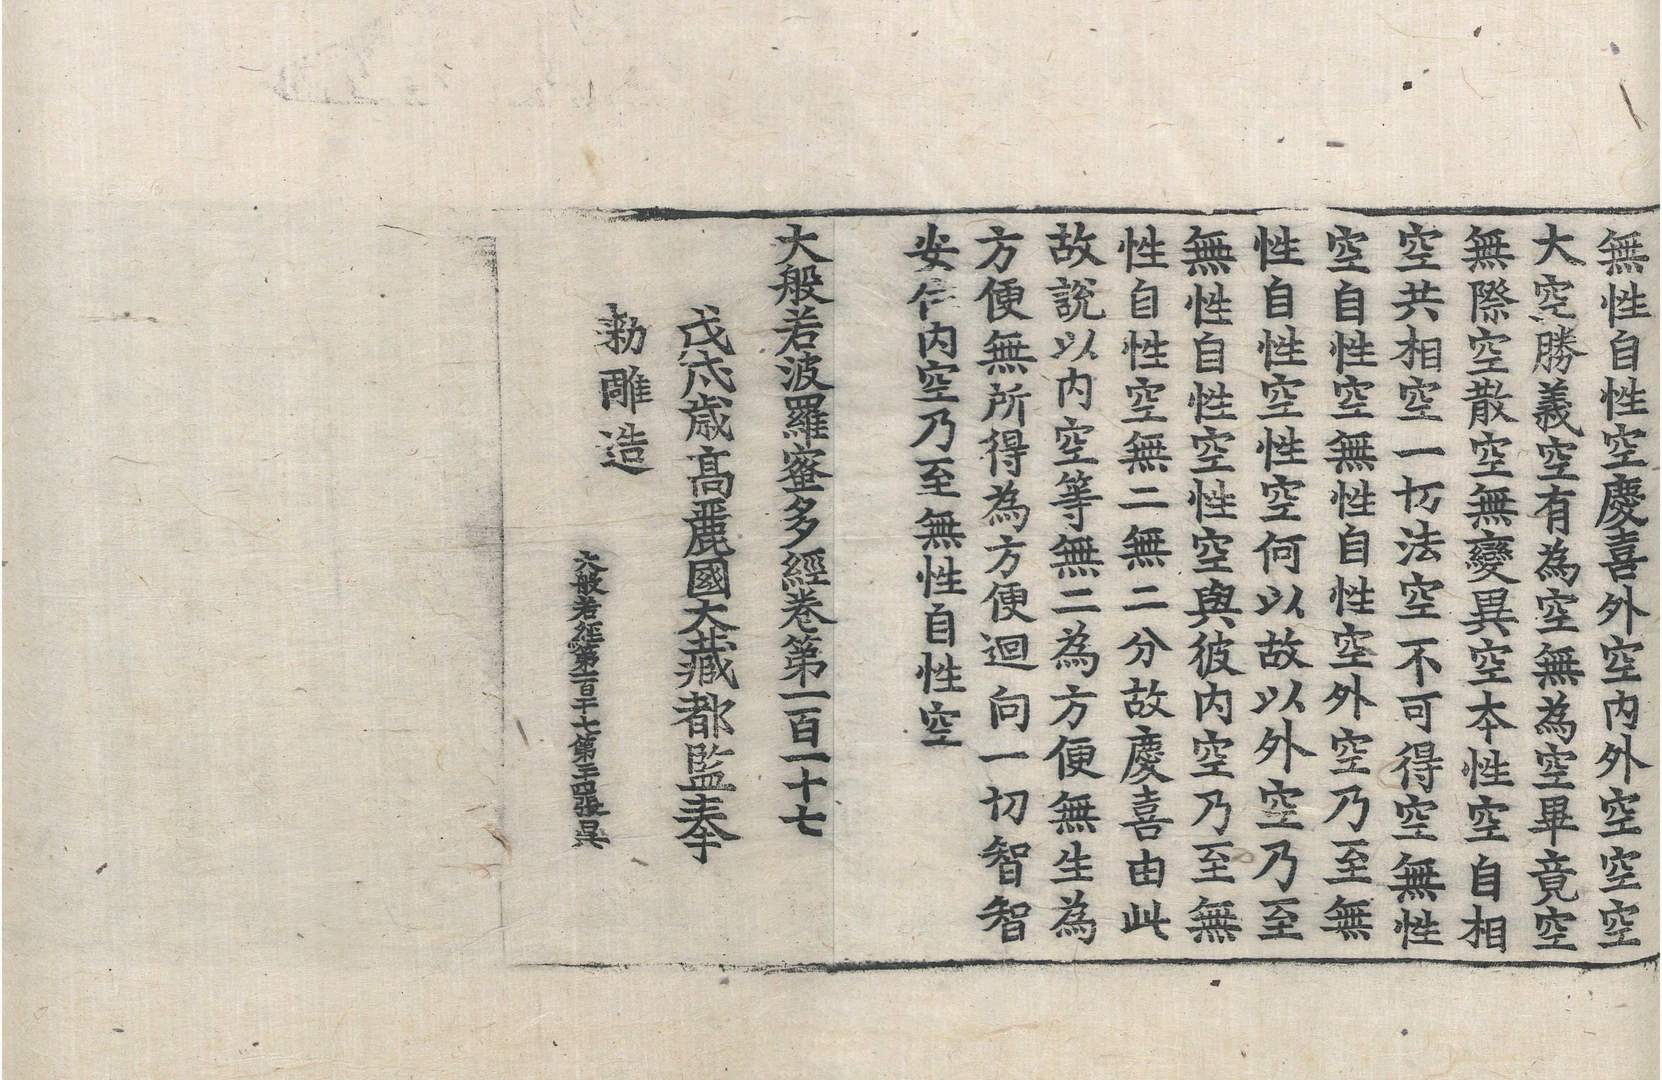 無性自性空慶喜外空内外空空空
大空勝義空有為空無為空畢竟空
無際空散空無變異空本性空自相
空共相空一切法空不可得空無性
空自性空無性自性空外空乃至無
性自性空性空何以故以外空乃至
無性自性空性空與彼内空乃至無
性自性空無二無二分故慶喜由此
故説以内空等無二為方便無生為
方便無所得為方便迴向一切智智
安住内空乃至無性自性空
大般若波羅蜜多經卷第一百一十七
戊戌歳髙麗國大藏都監奉
勑雕造
大般若經第一百十七第二十四張